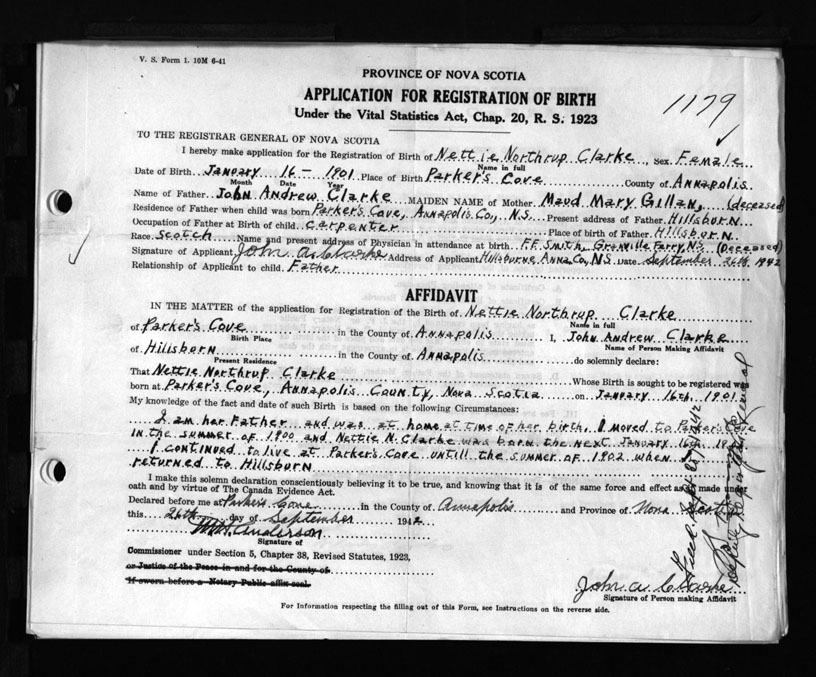 V. S. Form 1. 10M 6-41
PROVINCE OF NOVA SCOTIA
APPLICATION FOR REGISTRATION OF BIRTH
Under the Vital Statistics Act, Chap. 20, R. S. 1923
1179
TO THE REGISTRAR GENERAL OF NOVA SCOTIA
I hereby make application for the Registration of Birth of Nettie Northrup Clarke, Sex Female
Name in full
Date of Birth January 16 - 1901 Place of Birth Parker's Cove County of Annapolis
Month Date Year
Name of Father John Andrew Clarke MAIDEN NAME of Mother Maud Mary Gillan, (deceased)
Residence of Father when child was born Parker's Cove, Annapolis Co., N.S. Present address of Father Hillsborn
Occupation of Father at Birth of child Carpenter Place of birth of Father Hillsborn
Race Scotch Name and present address of Physician in attendance at birth F.F. Smith, Granville Farry, N.S (Deceased)
Signature of Applicant John A Clarke Address of Applicant Hillsburne Anna Co, N.S. Date September 26th 1942
Relationship of Applicant to child Father
AFFIDAVIT
IN THE MATTER of the application for Registration of the Birth of Nettie Northrup Clarke
Name in full
of Parker's Cove in the County of Annapolis I, John Andrew Clarke
Birth Place Name of Person Making Affidavit
of Hillsborn in the County of Annapolis do solemnly declare:
Present Residence
That Nettie Northrup Clarke Whose Birth is sought to be registered was
born at Parker's Cove, Annapolis County, Nova Scotia on January 16th 1901
My knowledge of the fact and date of such Birth is based on the following Circumstances:
I am her Father and was at home at time of her birth, I moved to Parker's Cove
in the summer of 1900 and Nettie N. Clarke was born the next January 16th
I continued to live at Parker's Cove untill the summer of 1902 when I
returned to Hillsborn
I make this solemn declaration conscientiously believing it to be true, and knowing that it is of the same force and effect as if made under
oath and by virtue of The Canada Evidence Act.
Declared before me at Parkers Cove in the County of Annapolis and Province of Nova Scotia
this 26th day of September 1942
Anderson
Signature of
Commissioner under Section 5, Chapter 38, Revised Statutes, 1923,
or Justice of the Peace in and for the County of
If sworn before a Notary Public affix seal.
John A Clarke
Signature of Person making Affidavit
For Information respecting the filling out of this Form, see Instructions on the reverse side.
Deputy Registrar General